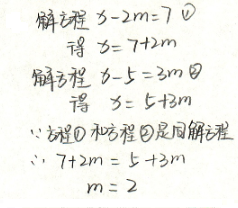 解方程 x-2m=7 ①
得 x=7+2m
解方程 x-5=3m ②
得 x=5+3m
∵方程①和方程②是同解方程
∴ 7+2m=5+3m
m=2